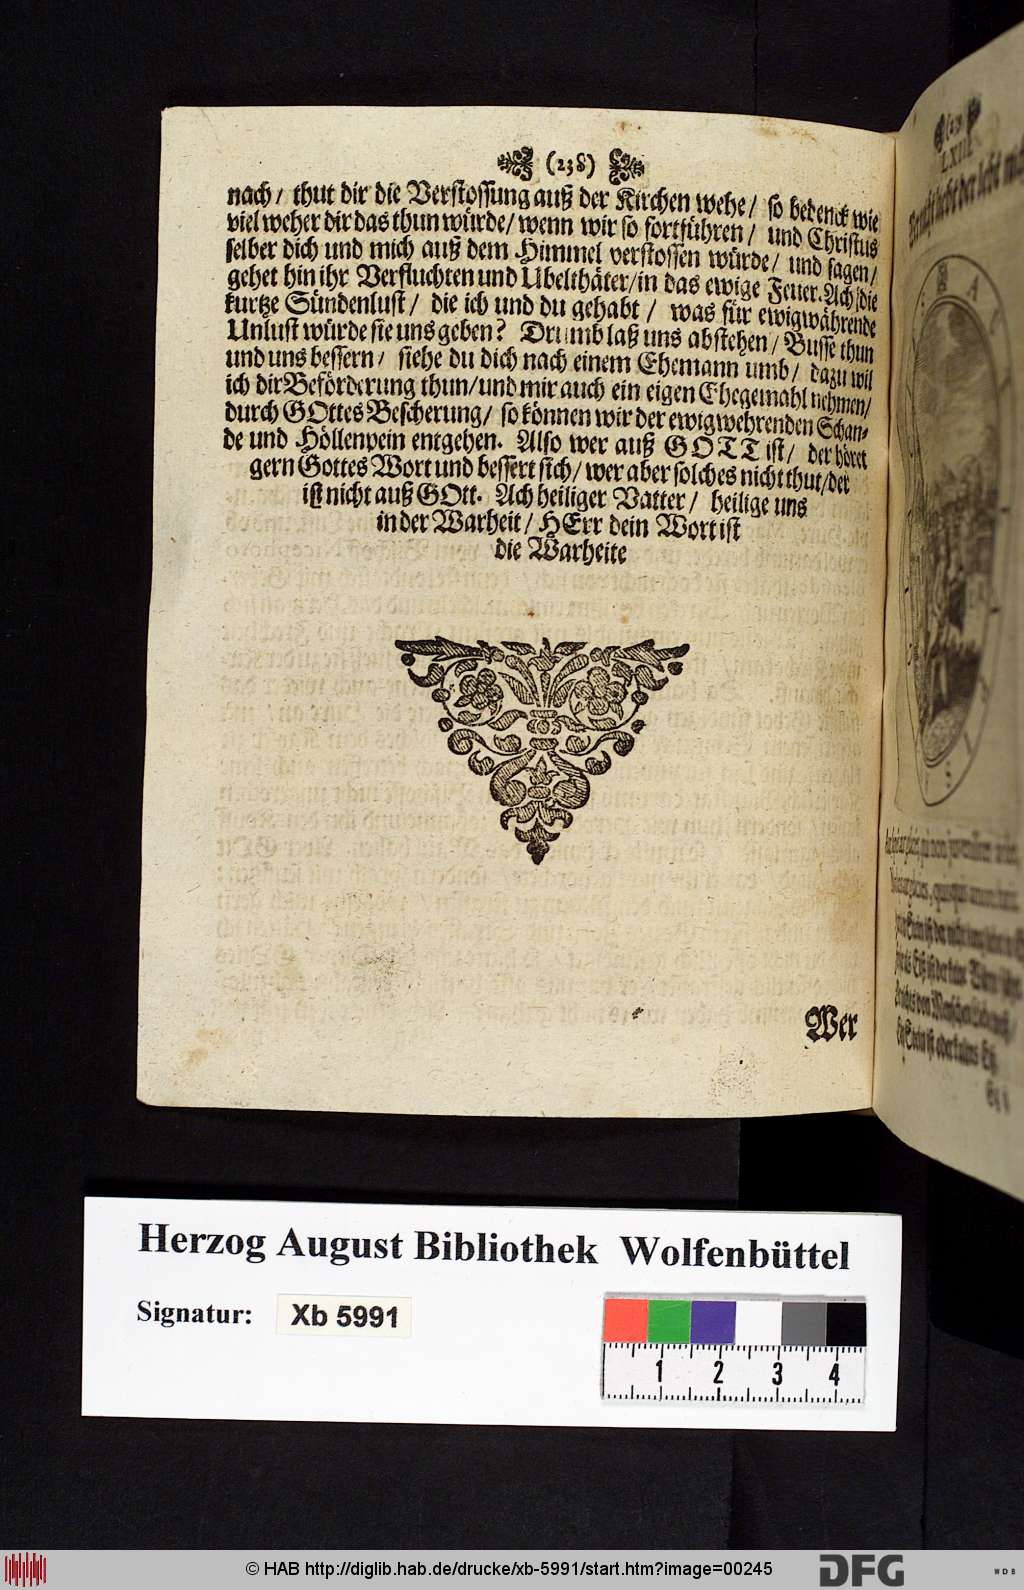 (238)
nach/ thut dir die Verstossung auß der Kirchen wehe/ so bedenck wie
viel weher dir das thun würde/ wenn wir so fortführen/ und Christus
selber dich und mich auß dem Himmel verstossen würde/ und sagen/
gehet hin ihr Verfluchten und Ubelthäter/ in das ewige Feuer. Ach/ die
kurtze Sündenlust/ die ich und du gehabt/ was für ewigwährende
Unlust würde sie uns geben? Drumb laß uns abstehen/ Busse thun
und uns bessern/ siehe du dich nach einem Ehemann umb/ dazu wil
ich dir Beförderung thun/ und mir auch ein eigen Ehegemahl nehmen/
durch GOttes Bescherung/ so können wir der ewigwehrenden Schan-
de und Höllenpein entgehen. Also wer auß GOTT ist/ der höret
gern Gottes Wort und bessert sich/ wer aber solches nicht thut/ der
ist nicht auß GOtt. Ach heiliger Vatter/ heilige uns
in der Warheit/ HErr dein Wort ist
die Warheite
Wer
LXIII.
Herzog August Bibliothek Wolfenbüttel
Signatur: Xb 5991
1 2 3 4
© HAB http://diglib.hab.de/drucke/xb-5991/start.htm?image=00245
DFG
WDB